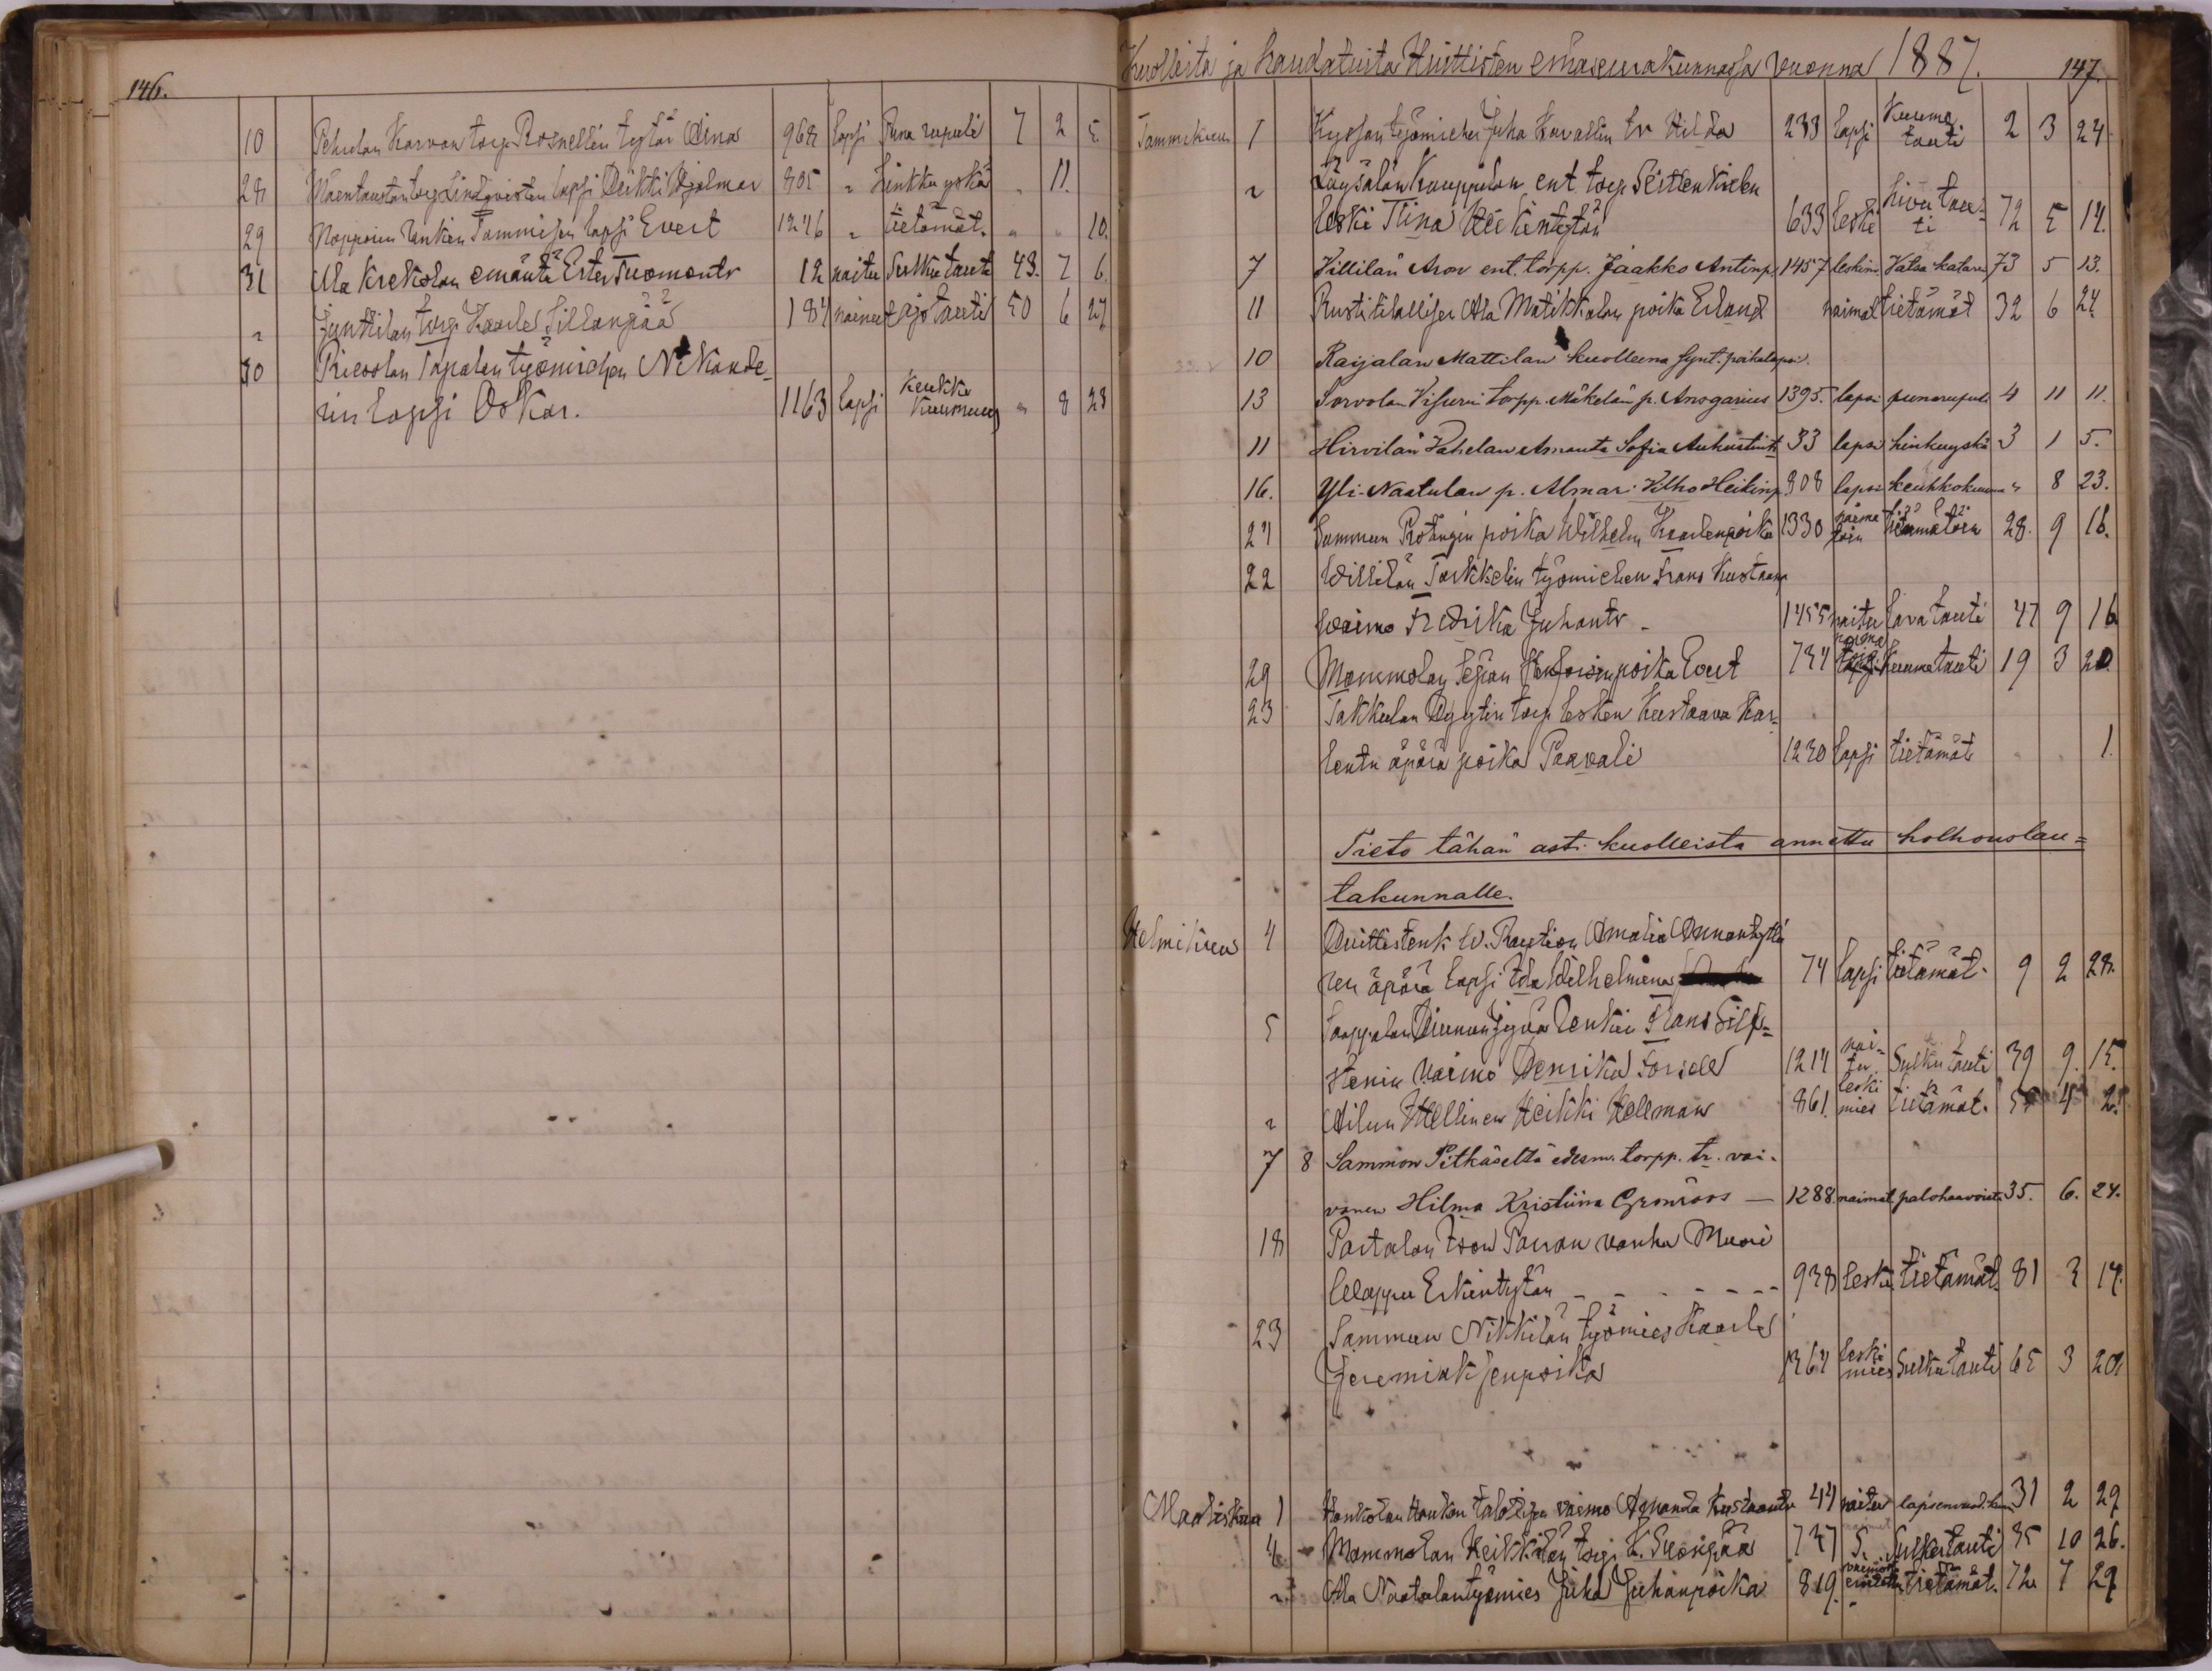 146.
10 Pehulan Karvan torp. Rosnellin tytär Aina 968 lapsi Puna rupuli 7 2 5.
28 Mäentaustan torp. Lindqvistin lapsi Heikki Hjalmar 805 " Hinkku yskä " 11.
29 Noppoisen Tammisen lapsi Evert 1246 " tietämät. " " 10.
31 Ala Krekolan emäntä Ester Tuomantr 12 naitu Sulku tauti 43. 7 6.
" Junttilan torp. Kaarle Sillanpää 184 nainut Ajo tauti 50 6 27
30 Rieskolan Tapalan työmiehen N. Kande-
rin lapsi Oskar. 1163 lapsi Keuhko Kuumuus " 8 28
Kuolleita ja haudatuita Huittisten emäseurakunnassa vuonna 1887. 147.
Tammikuu 1 työmiehen Juha Kavallin tr Hilda 233 lapsi Kuume tauti 2 3 24
" Löysälän Kauppilan ent. torp.
leski Tiina Heikintytär 633 leski tauti 72 5 14.
7 Villilän Aron ent. torpp. Jaakko Antinp. 1457 leskim. Vatsa katarri 73 5 13.
11 Rustitilallisen Ala Matikkalan poika Erland naimat tietämät 32 6 24.
10 Raijalan Mattilan kuolleena synt. poikalapsi.
13 Sorvolan Visurin torpp. Mäkelän p. Ansgarius 1395. lapsi punarupuli 4 11 11.
11 Hirvilän Vahelan Amanta Sofia Aukustint. 33 lapsi hinkuyskä 3 1 5.
16. Yli-Naatulan p. Almari Vilho Heikinp. 808 lapsi keuhkokuume " 8 23.
21 Sammun poika Wilhelm Kaarlenpoika 1330 naimatoin tietämätöin 28. 9 16.
22 Willilän Torkkelin työmiehen Frans Kustaanp.
waimo Fredrika Juhantr. 1455 naitu tauti 47 9 16
29 Mommolan Sepän poika Evert 734 naimatoin Kuumetauti 19 3 20.
23 Takkulan torp. lesken Kustaava Kar-
lentr äpärä poika Paavali 1230 lapsi tietämät " " 1.
Tieto tähän asti kuolleista annettu holhouslau=
takunnalle.
Helmikuu 4 W. Raution Amalia Annantyttä-
ren äpärä lapsi Ida Wilhelmina 74 lapsi tietämät. 9 2 28.
5 Frans
vaimo Henrika Forsell 1214 naitu Sulku tauti 39 9. 15.
" Heikki Hellman 861. leski mies tietämät.
7 8 Sammun Pitkäseltä edesm. torpp. tr. vai-
vanen Hilma Kristiina Grönroos — 1288 naimat. palohaavoista 35. 6. 24.
18 Partalan Ison Pairan vanha Muori
Erkintytär 938 leski tietämät. 81 3 14.
23 Sammun Nikkilän työmies Kaarle
Jeremiaksenpoika 1364 leski mies Sulku tauti 65 3 20
Maaliskuu 1 Hankolan Haukan talollisen vaimo Amanda Kustaantr 44 naitu 31 2 29
4 Mommolan Heikkilän torp. K. Suonpää 737 S. Sulkutauti 35 10 26.
" Ala Naatulan työmies Juha Juhanpoika 819. tietämät. 72 7 29